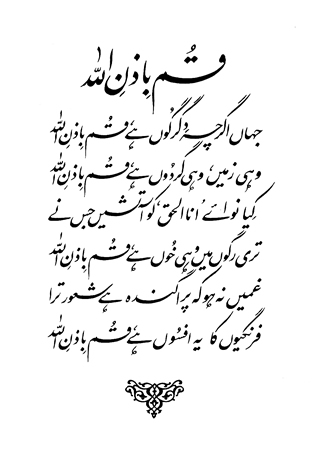 قُم باذنِ اللہ
جہاں اگرچہ دِگرگُوں ہے، قُم باذنِ اللہ
وہی زمیں، وہی گردُوں ہے، قُم باذنِ اللہ
کِیا نوائے ’اناالحق‘ کو آتشیں جس نے
تری رگوں میں وہی خُوں ہے، قُم باذنِ اللہ
غمیں نہ ہو کہ پراگندہ ہے شعور ترا
فرنگیوں کا یہ افسُوں ہے، قُم باذنِ اللہ